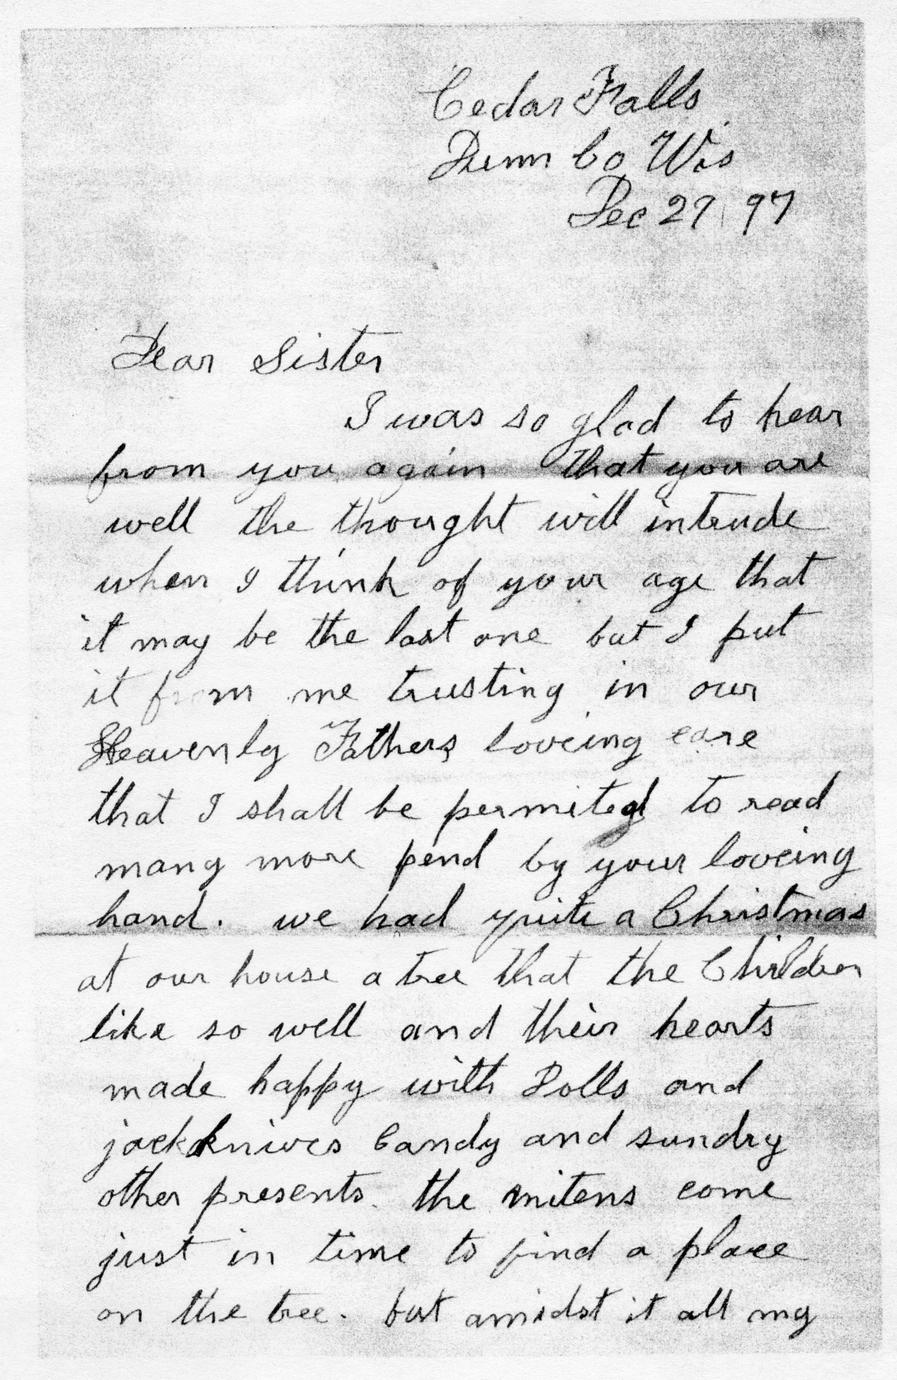 Cedar Falls
Dunn Co Wis
Dec 29 97
Dear Sister
I was so glad to hear
from you again that you are
well the thought will intrude
when I think of your age that
it may be the last one but I put
it from me trusting in our
Heavenly Fathers loveing care
that I shall be permited to read
many more pend by your loveing
hand. we had quite a Christmas
at our house a tree that the Children
like so well and their hearts
made happy with Dolls and
jackknives Candy and sundry
other presents. the mitens come
just in time to find a place
on the tree. but amidst it all my